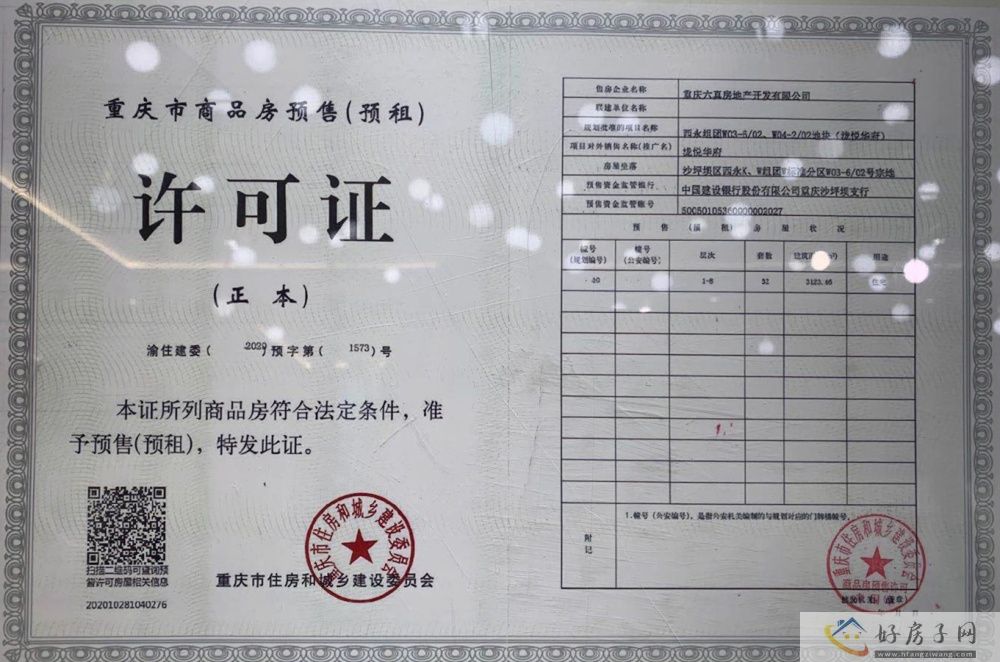 重庆市商品房预售(预租)
许可证
(正 本)
渝住建委( 2020)预字第( 1573)号
本证所列商品房符合法定条件，准
予预售(预租)，特发此证。
扫描二维码可查询预
售许可房屋相关信息
202010281040276
重庆市住房和城乡建设委员会
重庆市住房和城乡建设委员会
售房企业名称 重庆六真房地产开发有限公司
联建单位名称
规划批准的项目名称 西永组团W03-6/02、W04-2/02地块（珑悦华府）
项目对外销售名称(推广名) 珑悦华府
房屋坐落 沙坪坝区西永K、W组团W标准分区W03-6/02号宗地
预售资金监管银行 中国建设银行股份有限公司重庆沙坪坝支行
预售资金监管账号
预 售 （预 租） 房 屋 状 况
幢号(规划编号) 幢号(公安编号) 层次 套数 用途
1-8 52 3123.46 住宅
附记
1.幢号（公安编号），是指公安机关编制的与规划对应的门牌楼幢号。
重庆市住房和城乡建设委员会
商品房预售许可
好房子网
www.hfangziwang.com